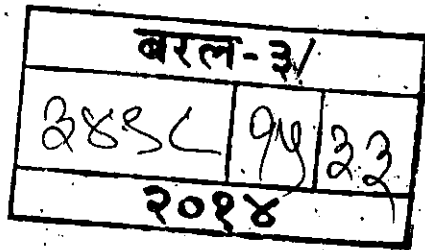 बरल-३/
३४९८ १५ ३३
२०१४